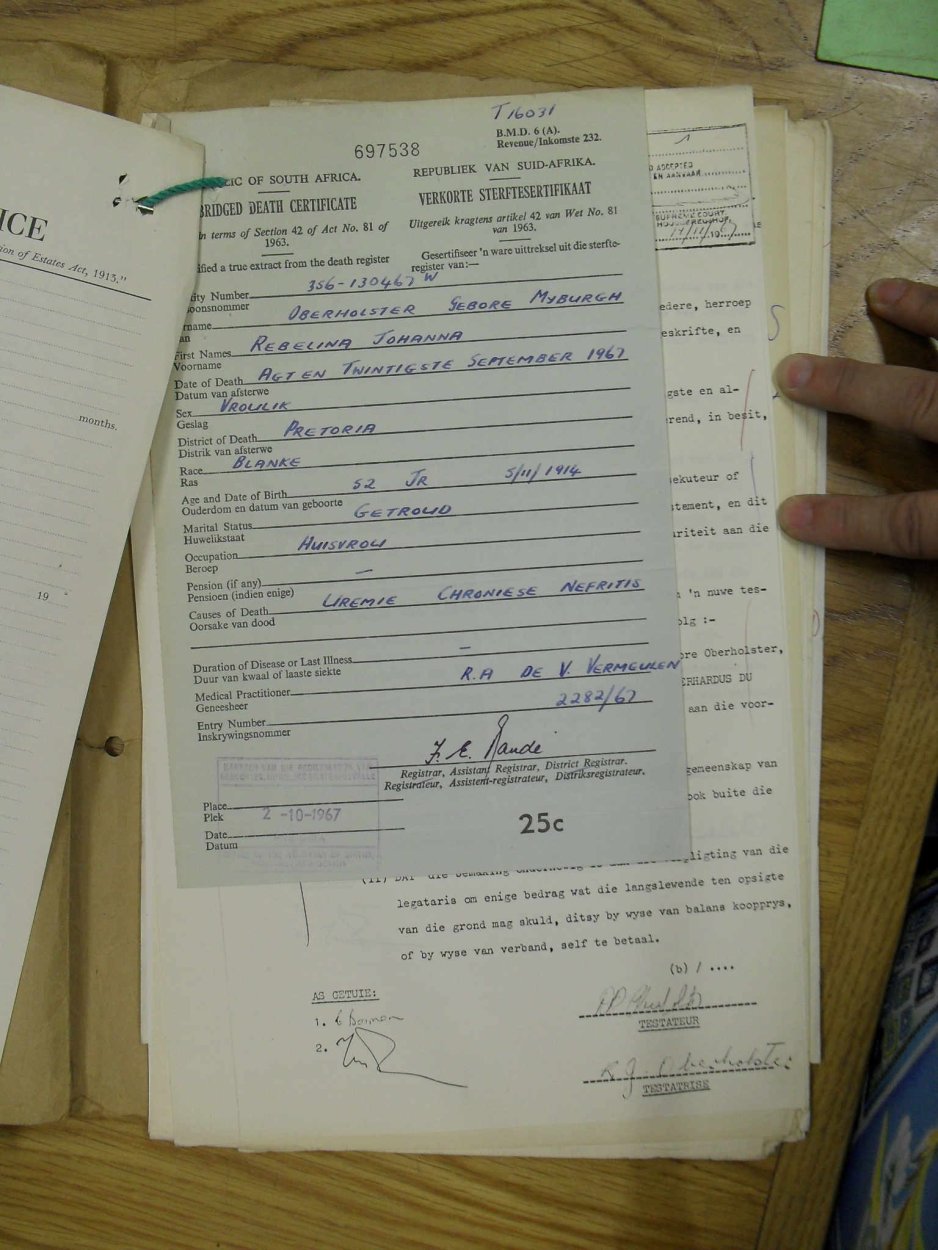 T16031
B.M.D. 6 (A).
Revenue/Inkomste 232.
697538
LIC OF SOUTH AFRICA.
REPUBLIEK VAN SUID-AFRIKA.
BRIDGED DEATH CERTIFICATE
VERKORTE STERFTESERTIFIKAAT
in terms of Section 42 of Act No. 81 of
1963.
Uitgereik kragtens artikel 42 van Wet No. 81
van 1963.
ified a true extract from the death register
Gesertifiseer 'n ware uittreksel uit die sterfte-
register van:—
ity Number 356-130467 W
oonsnommer
rname OBERHOLSTER GEBORE MYBURGH
an
First Names REBELINA JOHANNA
Voorname
Date of Death AGT EN TWINTIGSTE SEPTEMBER 1967
Datum van afsterwe
Sex VROULIK
Geslag
District of Death PRETORIA
Distrik van afsterwe
Race BLANKE
Ras
Age and Date of Birth 52 JR 5/11/1914
Ouderdom en datum van geboorte
Marital Status GETROUD
Huwelikstaat
Occupation HUISVROU
Beroep
Pension (if any) —
Pensioen (indien enige)
Causes of Death UREMIE CHRONIESE NEFRITIS
Oorsake van dood
Duration of Disease or Last Illness —
Duur van kwaal of laaste siekte
Medical Practitioner R.A DE V. VERMEULEN
Geneesheer
Entry Number 2282/67
Inskrywingsnommer
Registrar, Assistant Registrar, District Registrar.
Registrateur, Assistent-registrateur, Distriksregistrateur.
Place
Plek
2 -10-1967
Date
Datum
25c
ICE
ion of Estates Act, 1913."
months.
19
D ACCEPTED
EN AANVAAR
SUPREME COURT
edere, herroep
eskrifte, en
gste en al-
rend, in besit,
ekuteur of
stement, en dit
uriteit aan die
'n nuwe tes-
olg :-
ore Oberholster,
ERHARDUS DU
aan die voor-
gemeenskap van
ook buite die
(ii) DAT die bemaking onderhewig is aan die verpligting van die
legataris om enige bedrag wat die langslewende ten opsigte
van die grond mag skuld, ditsy by wyse van balans koopprys,
of by wyse van verband, self te betaal.
(b) / ....
AS GETUIE:
1.
2.
TESTATEUR
R J Oberholster
TESTATRISE